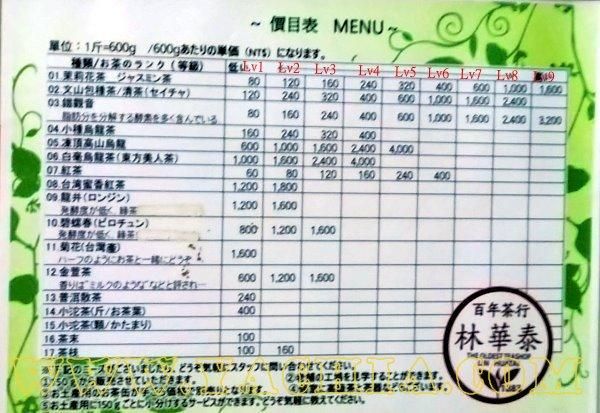 ~ 價目表 MENU ~
單位：1斤=600g /600gあたりの単価（NT$）になります。
種類/お茶のランク（等級） 低い Lv1 Lv2 Lv3 Lv4 Lv5 Lv6 Lv7 Lv8 Lv9
01.茉莉花茶 ジャスミン茶 80 120 160 240 320 400 600 1,000 1,600
02.文山包種茶/清茶(セイチャ) 120 240 320 400 600 1,000 1,600 2,400
03.鐵觀音
脂肪分を分解する酵素を多く含んでいる 80 160 240 400 600 1,000 1,600 2,400 3,200
04.小種烏龍茶 160 240 320 400
05.凍頂高山烏龍 600 1,000 1,600 2,400 4,000
06.白毫烏龍茶(東方美人茶) 1,000 1,600 2,400 4,000
07.紅茶 60 80 120 160 240 400
08.台湾蜜香紅茶 1,200 1,800
09.龍井(ロンジン)
発酵度が低く、緑茶 1,200 1,600
10.碧螺春(ピロチュン)
発酵度が低く、緑茶 800 1,200 1,600
11.菊花(台灣産)
ハーフのようにお茶と一緒にどうぞ 1,600
12.金萱茶
香りは"ミルクのような"などと評され… 600 1,200 1,600
13.普洱散茶 240
14.小沱茶(斤/お茶葉) 400
15.小沱茶(顆/かたまり)
16.茶末 100
17.茶枝 100 160
百年茶行
林華泰
THE OLDEST TEASHOP
LIN HUATAI
1883
※下記のニーズがございましたら、どうぞ気軽にスタッフに問い合わせてください。